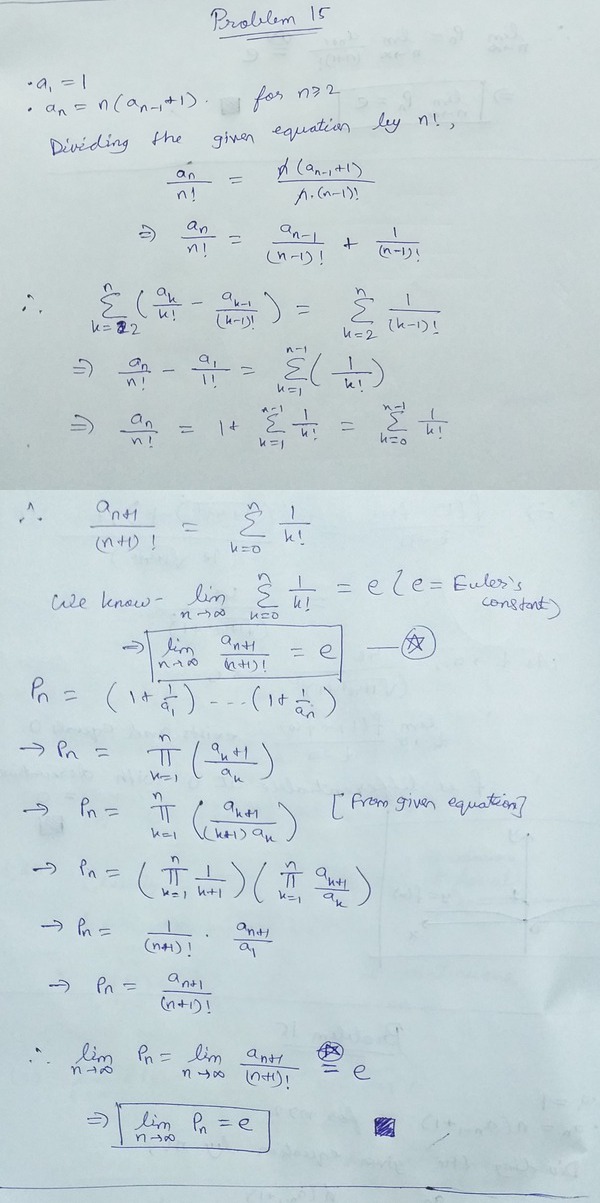 Problem 15
• a₁ = 1
• aₙ = n(aₙ₋₁+1). for n≥2
Dividing the given equation by n!,
aₙ/n! = n(aₙ₋₁+1)/n·(n-1)!
⇒ aₙ/n! = aₙ₋₁/(n-1)! + 1/(n-1)!
∴ ∑_{k=2}^{n} (a_k/k! − a_{k-1}/(k-1)!) = ∑_{k=2}^{n} 1/(k-1)!
⇒ aₙ/n! − a₁/1! = ∑_{k=1}^{n-1} (1/k!)
⇒ aₙ/n! = 1+ ∑_{k=1}^{n-1} 1/k! = ∑_{k=0}^{n-1} 1/k!
∴ a_{n+1}/(n+1)! = ∑_{k=0}^{n} 1/k!
We know- lim_{n→∞} ∑_{k=0}^{n} 1/k! = e (e = Euler's constant)
⇒ lim_{n→∞} a_{n+1}/(n+1)! = e —☆
Pₙ = (1+ 1/a₁) ---- (1+ 1/aₙ)
→ Pₙ = ∏_{k=1}^{n} (a_k+1/a_k)
→ Pₙ = ∏_{k=1}^{n} (a_{k+1}/(k+1) a_k) [From given equation]
→ Pₙ = (∏_{k=1}^{n} 1/k+1) (∏_{k=1}^{n} a_{k+1}/a_k)
→ Pₙ = 1/(n+1)! · a_{n+1}/a₁
→ Pₙ = a_{n+1}/(n+1)!
∴ lim_{n→∞} Pₙ = lim_{n→∞} a_{n+1}/(n+1)! =☆ e
⇒ lim_{n→∞} Pₙ = e ■